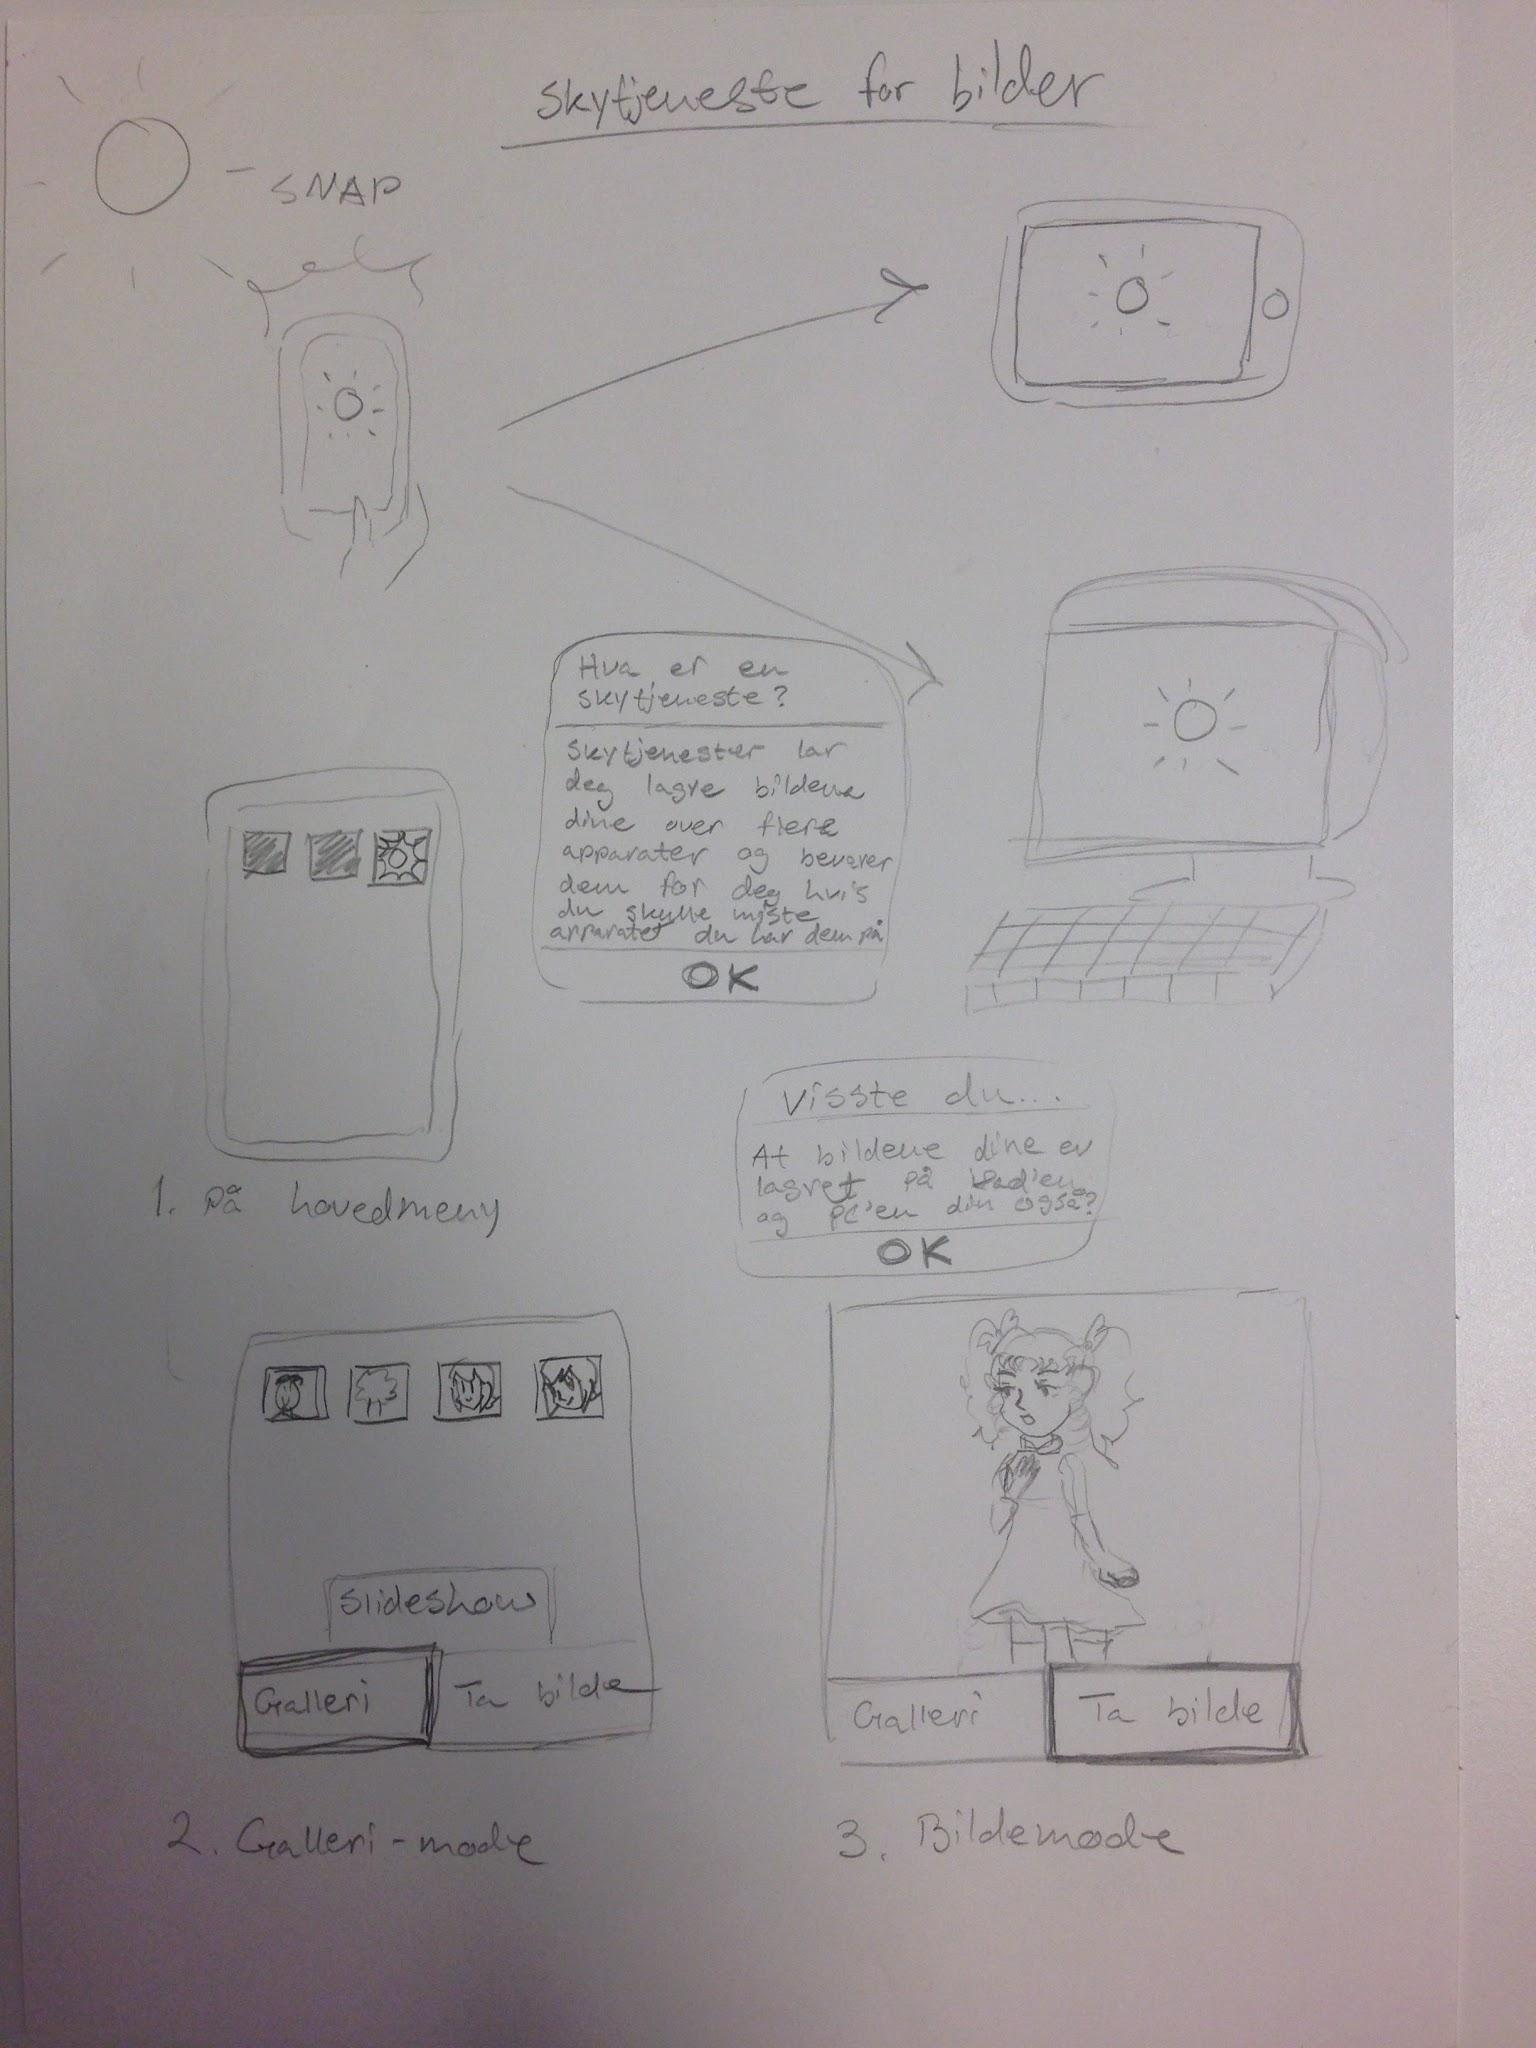 skytjeneste for bilder
SNAP
Hva er en
skytjeneste?
Skytjenester lar
deg lagre bildene
dine over flere
apparater og bevarer
dem for deg hvis
du skulle miste
apparatet du har dem på
OK
Visste du...
At bildene dine er
lagret på ipad'en
og PC'en din også?
OK
1. På hovedmeny
slideshow
Galleri
Ta bilde
2. Galleri-mode
Galleri
Ta bilde
3. Bildemode